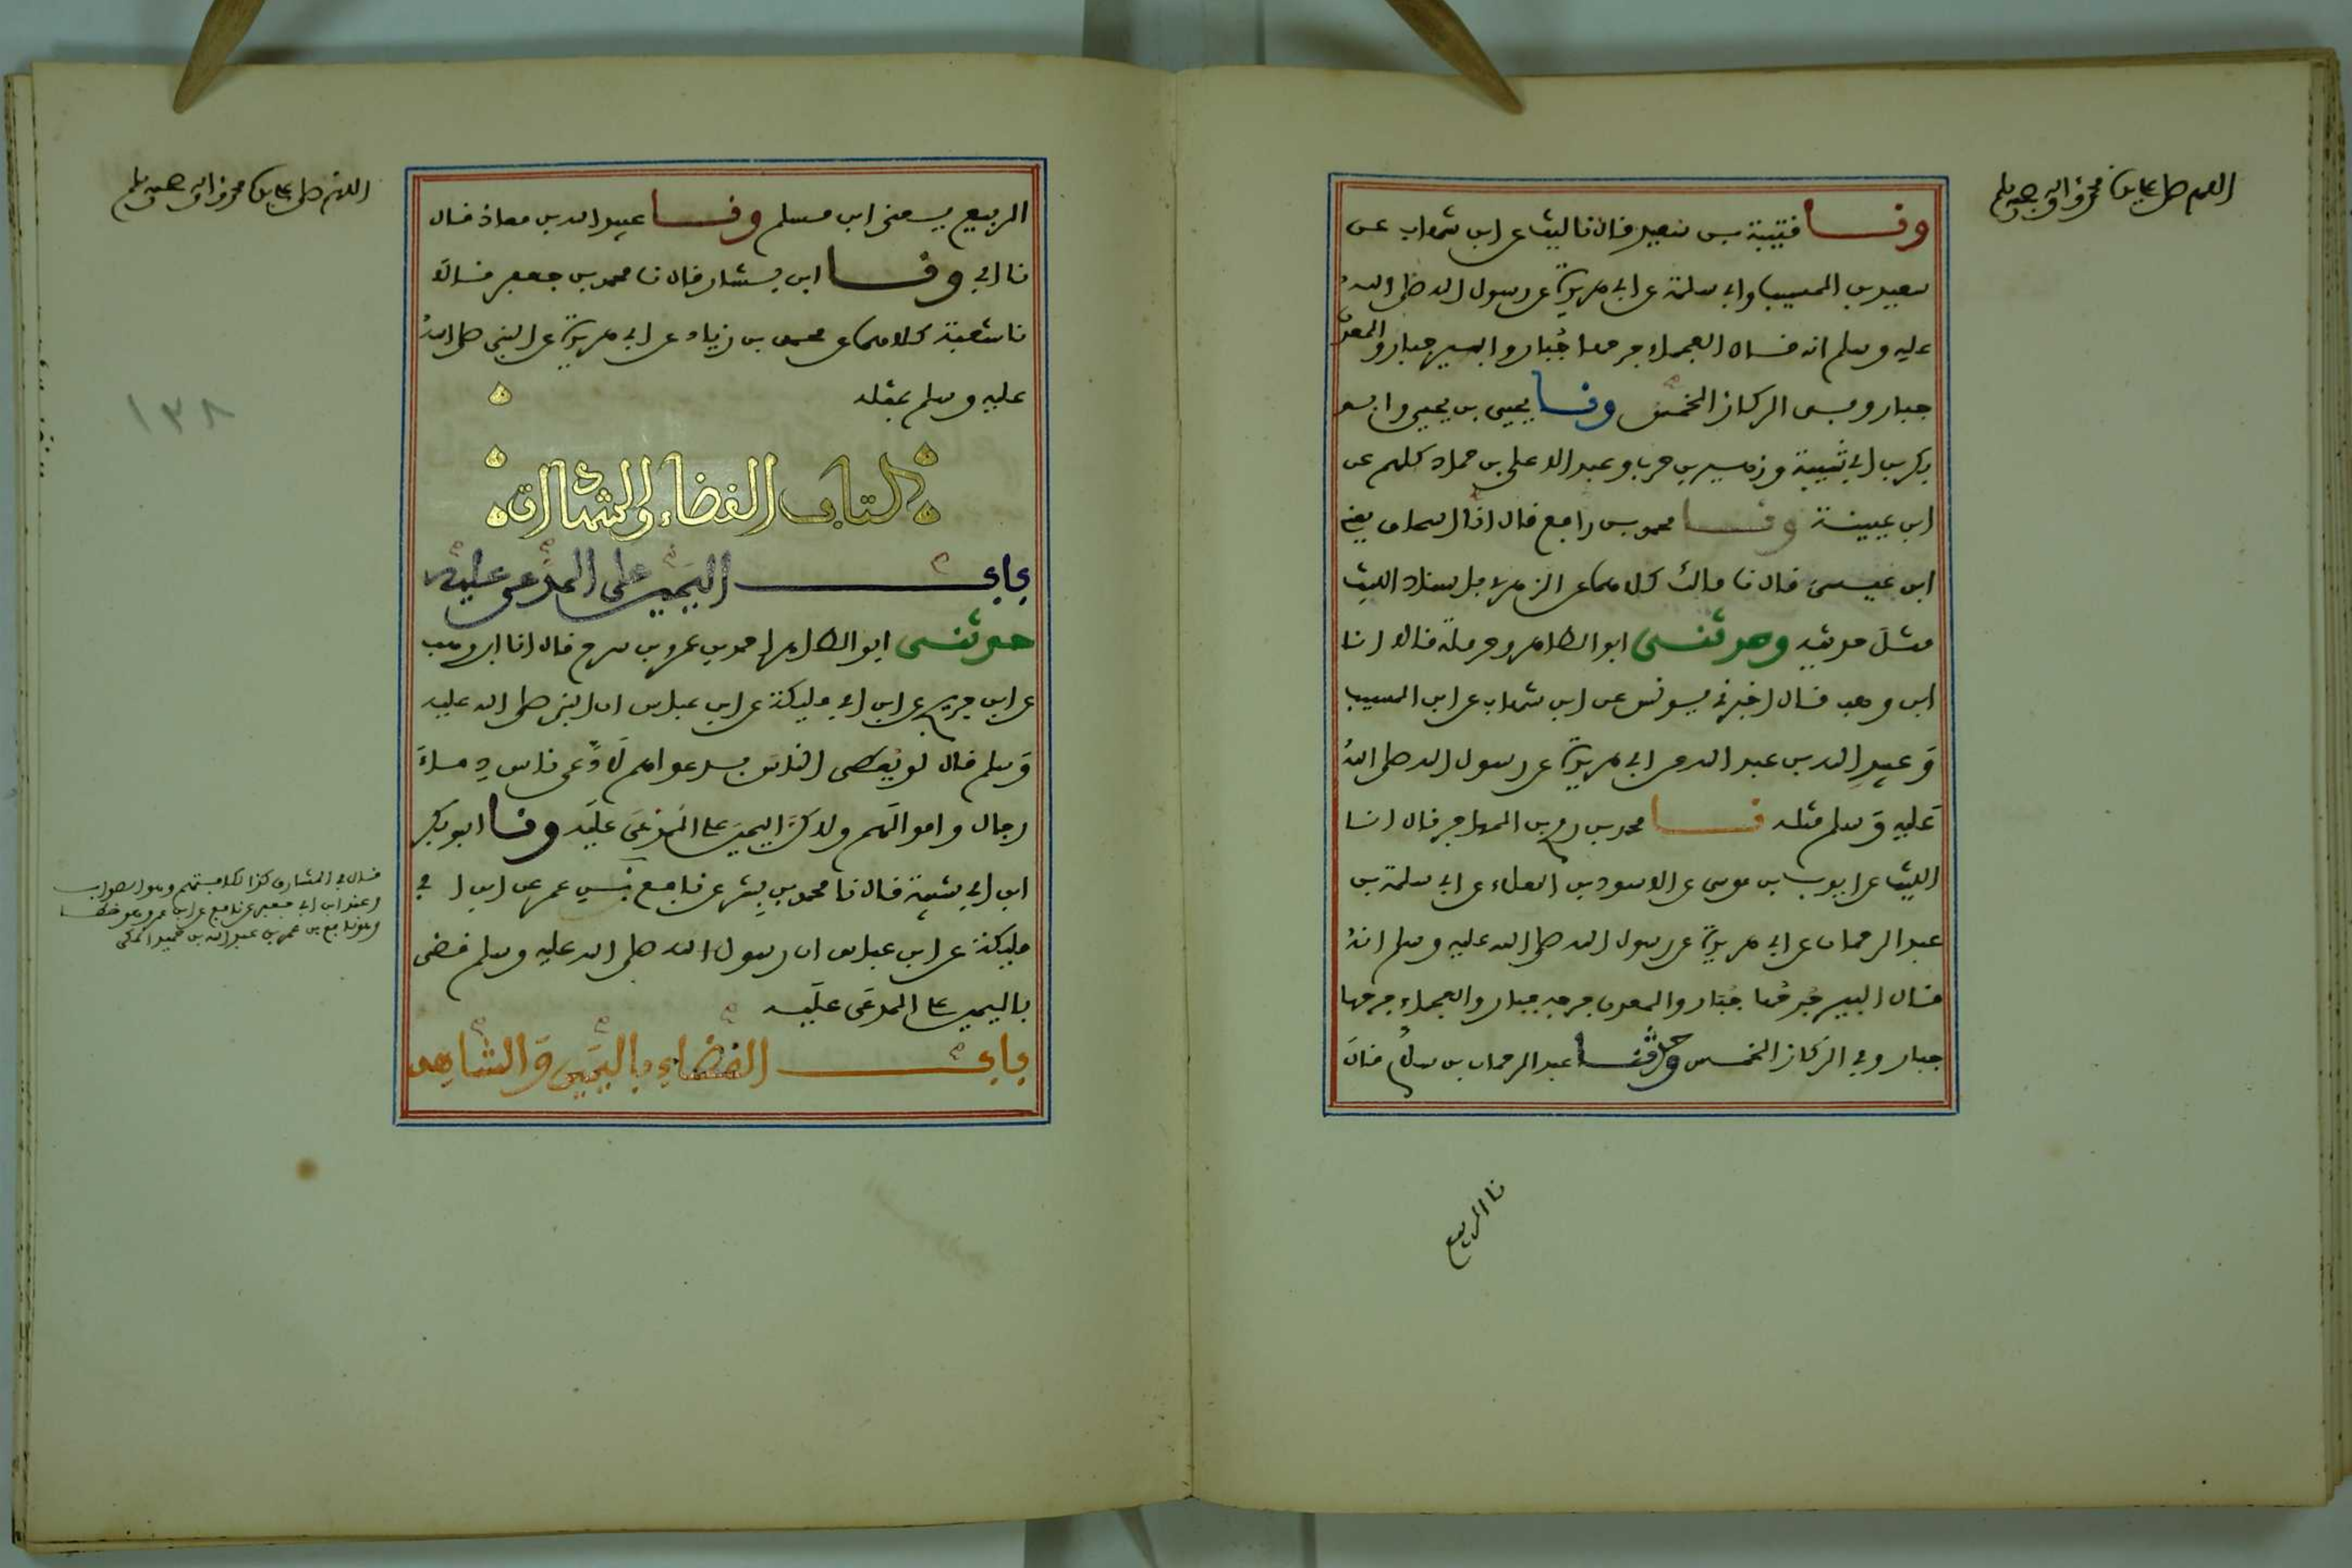 اللهم صل على سيدنا محمد وآله وصحبه وسلم
ونا قتيبة بن سعيد قال نا ليث عن ابن شهاب عن
سعيد بن المسيب وابي سلمة عن ابي هريرة عن رسول الله صلى الله
عليه وسلم انه قال العجماء جرحها جُبار والبير جبار والمعدن
جبار وفى الركاز الخمس ونا يحيى بن يحيى وابو
بكر بن ابي شيبة وزهير بن حرب وعبد الاعلى بن حماد كلهم عن
ابن عيينة ونا محمد بن رافع قال انا اسحاق يعنى
ابن عيسى قال نا مالك كلاهما عن الزهري باسناد الليث
مثل حديثه وحدثنى ابو الطاهر وحرملة قالا انا
ابن وهب قال اخبرني يونس عن ابن شهاب عن ابن المسيب
وعبيد الله بن عبد الله عن ابي هريرة عن رسول الله صلى الله
عليه وسلم مثله نا محمد بن رمح بن المهاجر قال انا
الليث عن ايوب بن موسى عن الاسود بن العلاء عن ابي سلمة بن
عبد الرحمان عن ابي هريرة عن رسول الله صلى الله عليه وسلم انه
قال البير جُرحُها جُبَار والمعدن جرحه جبار والعجماء جرحها
جبار وفي الركاز الخمس وحدثنا عبد الرحمان بن سلام قال
نا الربيع
اللهم صل على سيدنا محمد وآله وصحبه وسلم
الربيع يعنى ابن مسلم ونا عبيد الله بن معاذ قال
نا ابي ونا ابن بشار قال نا محمد بن جعفر قالا
نا شعبة كلاهما عن محمد بن زياد عن ابي هريرة عن النبي صلى الله
عليه وسلم بمثله
كتاب القضاء والشهادات
باب اليمين على المدعى عليه
حدثنى ابو الطاهر احمد بن عمرو بن سرح قال انا ابن وهب
عن ابن جريج عن ابن ابي مليكة عن ابن عباس ان النبي صلى الله عليه
وسلم قال لو يُعطى الناس بدعواهم لادَّعى ناس دماءَ
رجال واموالَهم ولاكنَّ اليمينَ على المدعَى علَيه ونا ابو بكر
ابن ابي شيبة قال نا محمد بن بِشر عن نافع بن عمر عن ابن ابي
مليكة عن ابن عباس ان رسول الله صلى الله عليه وسلم قضى
باليمين على المدعَى علَيه
باب القضاء باليمين والشاهد
قال في المشارق كذا لكلا وهو الصواب
وعند ابن ابي جعفر عن نافع عن ابن عمر وهو خطأ
وهو نافع بن عمر بن عبد الله بن جميل المكي
١٣٨